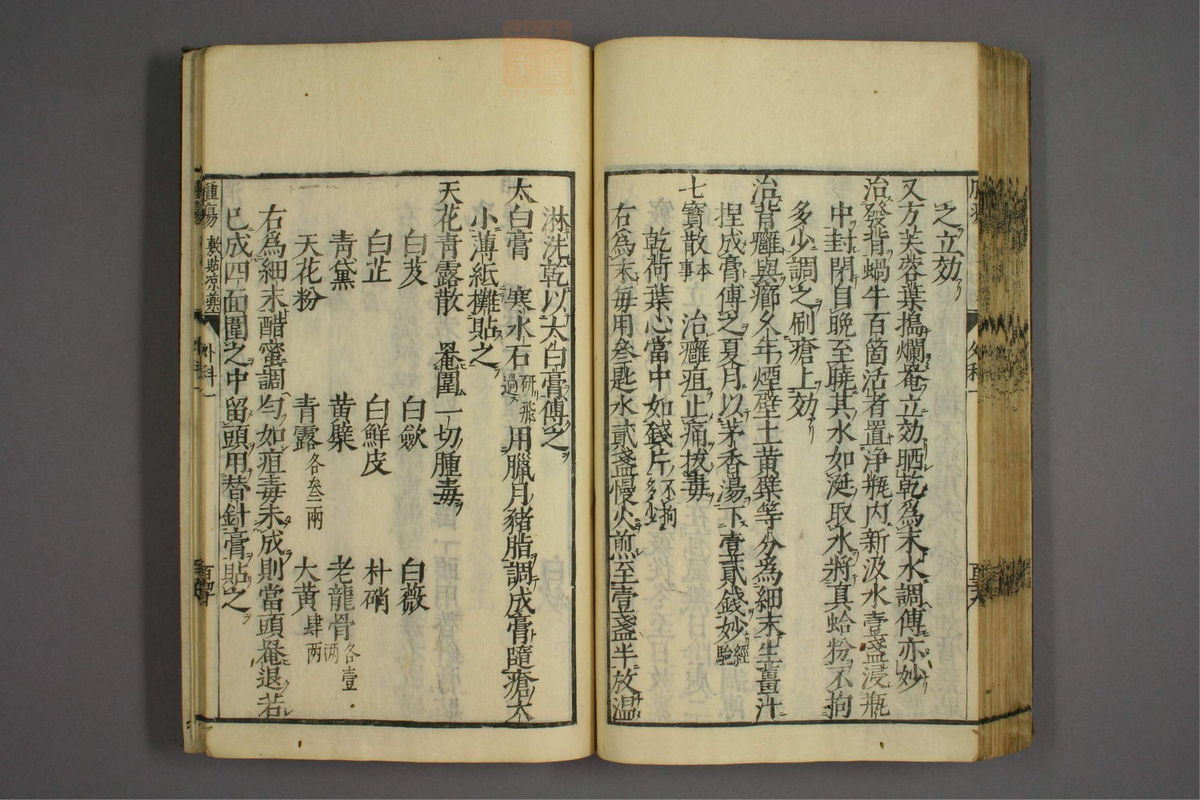 之立効
又方芙蓉葉搗爛菴立効晒乾為末水調傅亦妙
治發背蝸牛百箇活者置浄瓶内新汲水壹盞浸瓶
中封閉自晚至曉其水如涎取水將真蛤粉不拘
多少調之刷瘡上効
治背癰與癤久年煙壁土黄蘗等分為細末生薑汁
捏成膏傅之夏月以茅香湯下壹貳錢妙經驗
七寶散本事 治癰疽止痛拔毒
乾荷葉心當中如錢片不拘多少
右為末每用叄匙水貳盞慢火煎至壹盞半放温
淋洗乾以太白膏傅之
太白膏 寒水石研飛過用臘月豬脂調成膏隨瘡大
小薄紙攤貼之
天花青露散 菴圍一切腫毒
白芨 白歛 白薇
白芷 白鮮皮 朴硝
青黛 黄蘗 老龍骨各壹兩
天花粉 青露各叄兩 大黄肆兩
右為細末醋蜜調勻如疽毒未成則當頭菴退若
已成四面圍之中留頭用替針膏貼之
腫瘍 敷貼凉藥 外科一